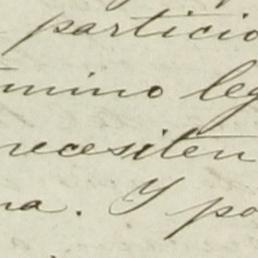 particio
mino leg
necesiten
na. Y po